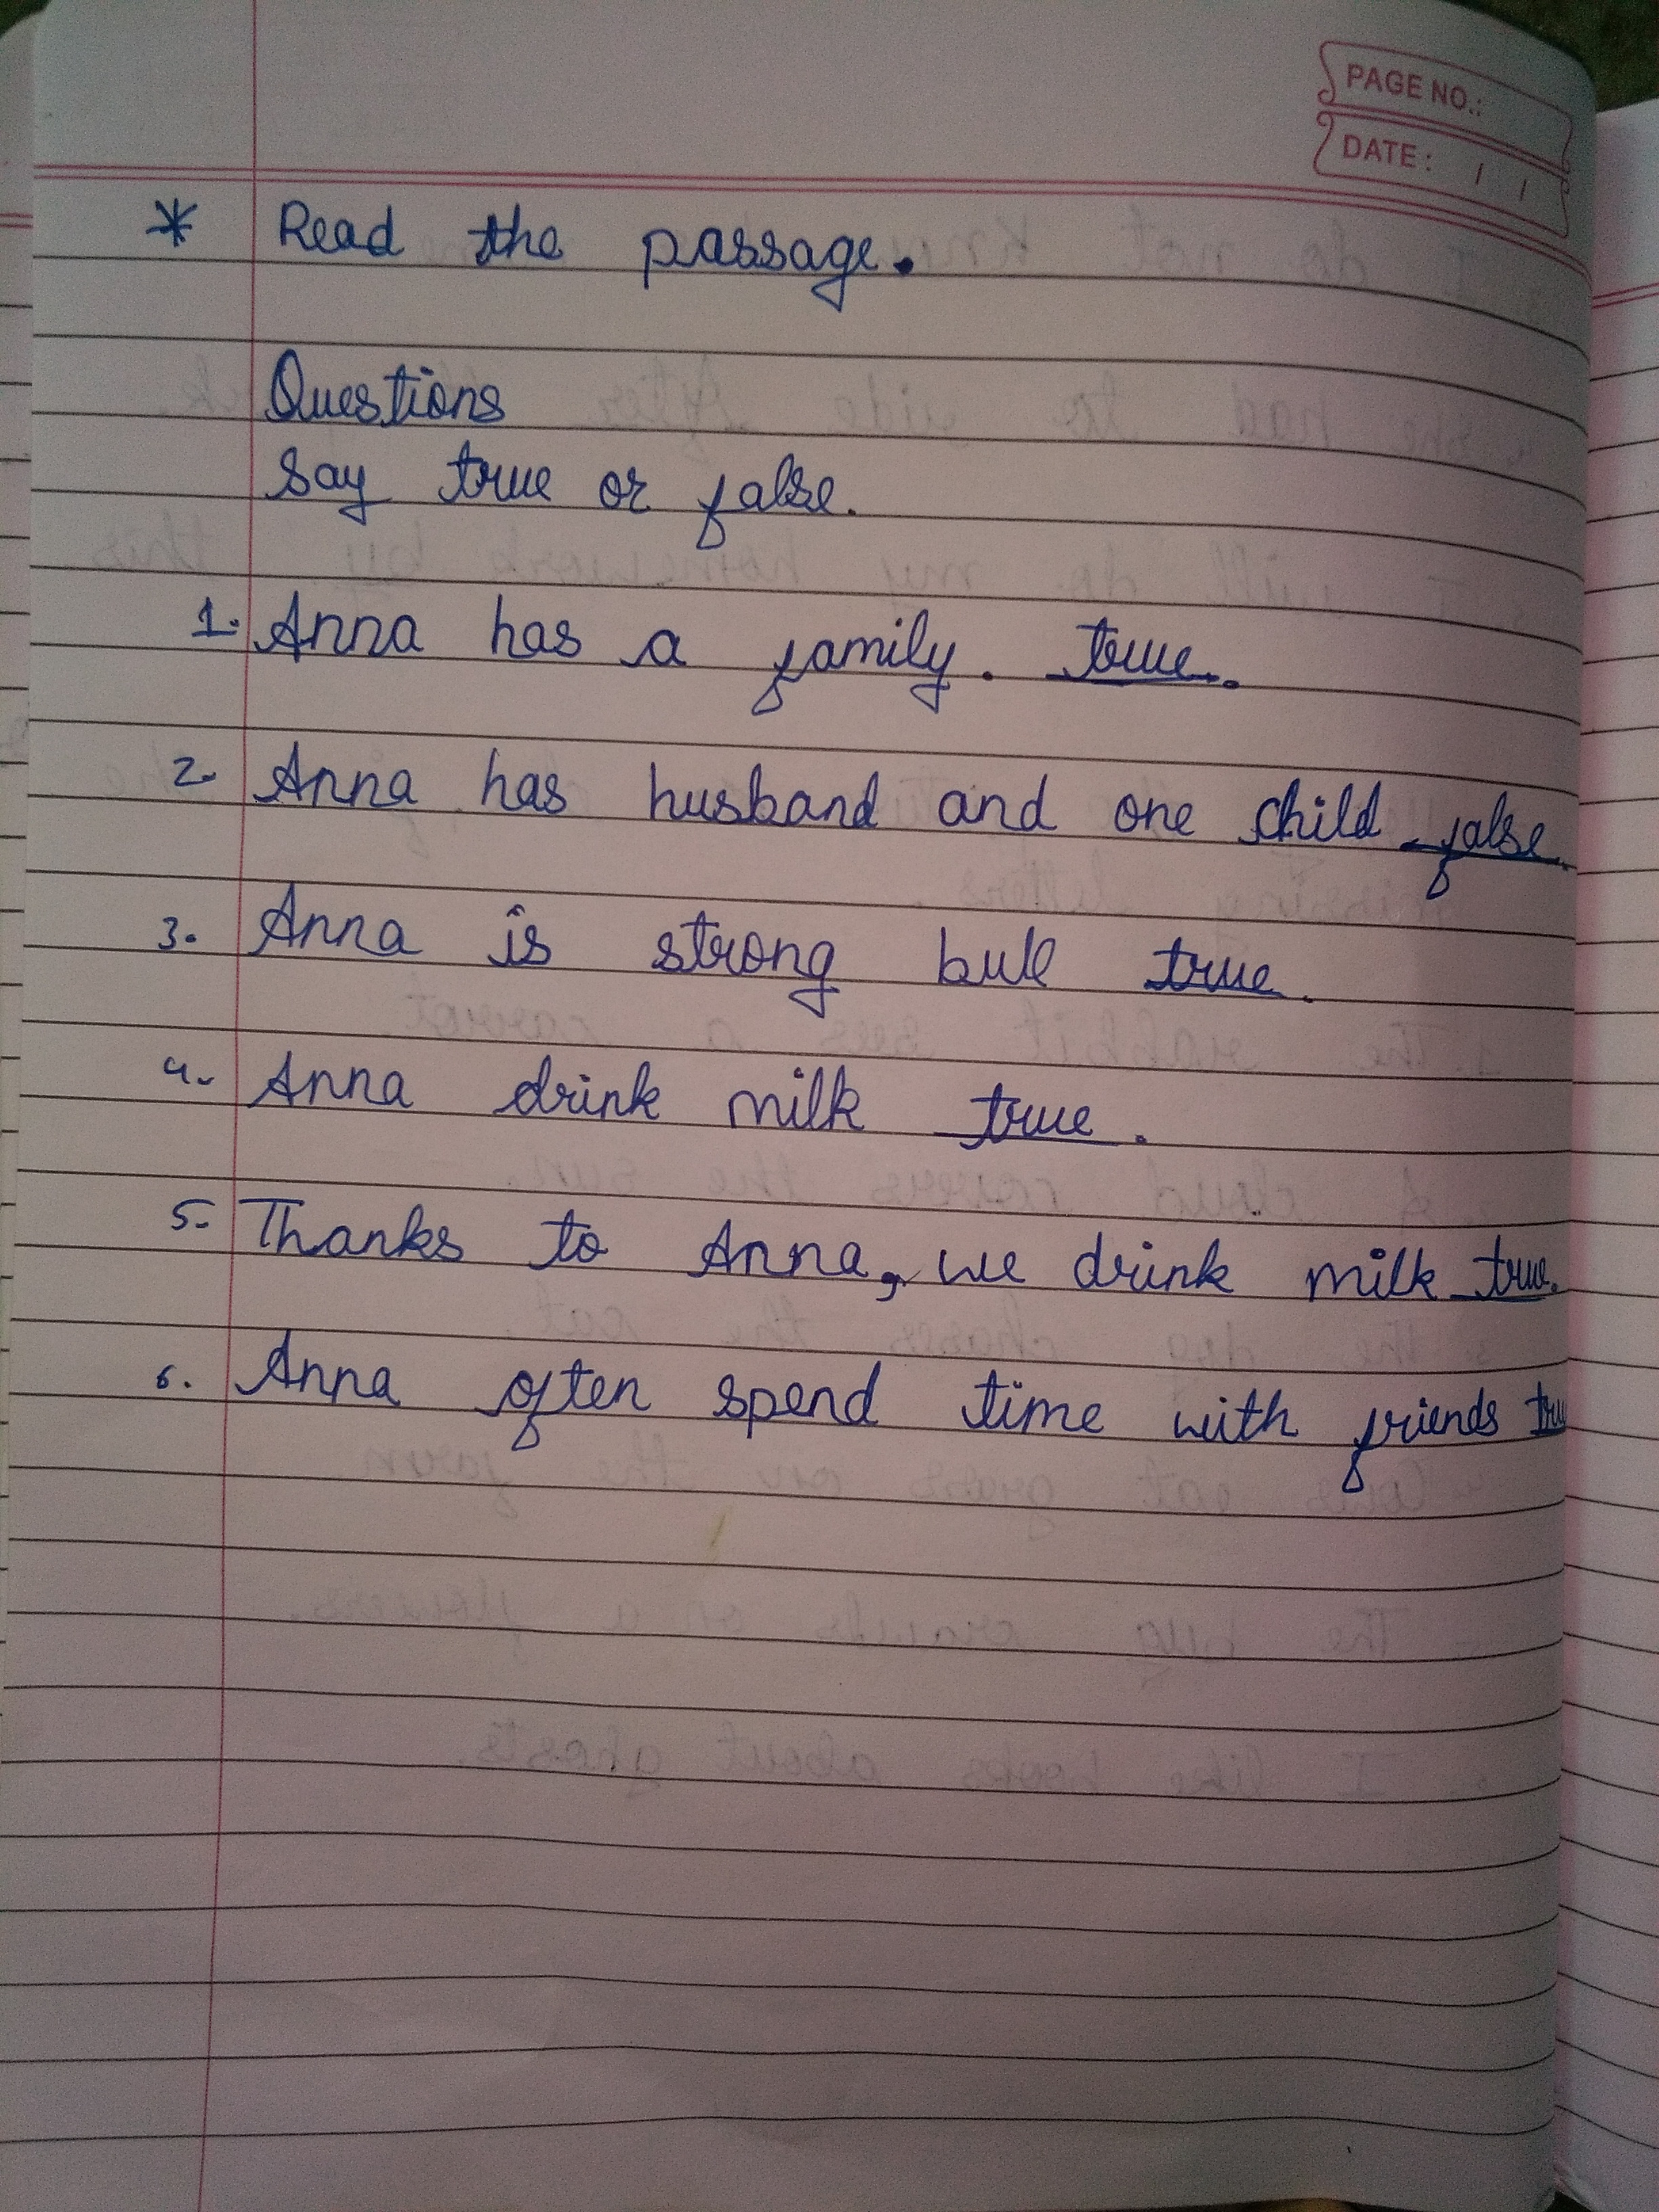 PAGE NO.:
DATE: / /
* Read the passage.
Questions
Say true or false.
1. Anna has a family. true.
2. Anna has husband and one child false.
3. Anna is strong bull true.
4. Anna drink milk true.
5. Thanks to Anna, we drink milk true.
6. Anna often spend time with friends tru